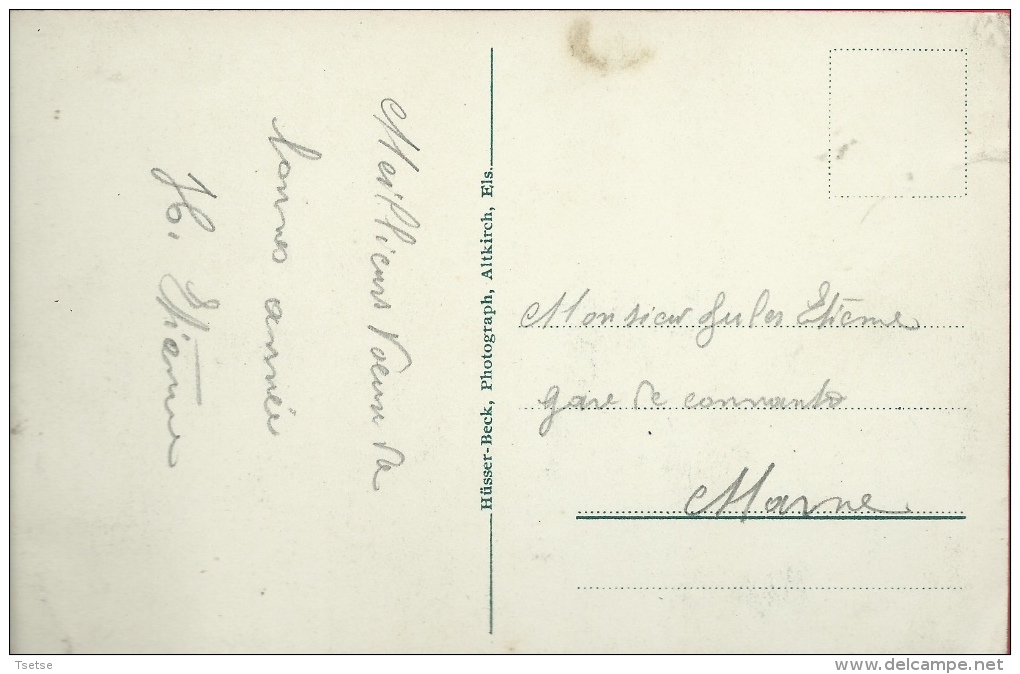 Meillieurs Voeux de
bonnes année
H. Etienne
Hüsser-Beck, Photograph, Altkirch, Els.
Monsieur Jules Etienne
gare de connantre
Marne
Tsetse
www.delcampe.net